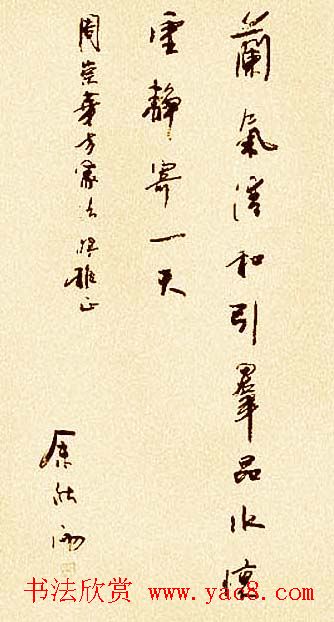 蘭氣清和引羣品水懷
虛靜寄一天
周華方家法雅正
余秋雨
书法欣赏 www.yac8.com